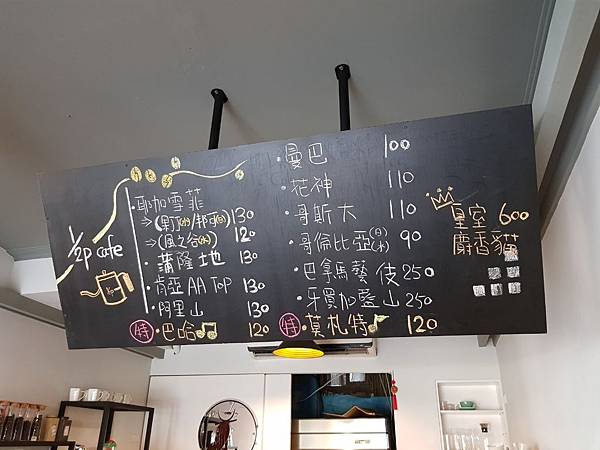 1/2p cafe
耶加雪菲
⇒(果丁丁(水)/邦可(日)) 130
⇒(風之谷(水)) 120
蒲隆地 130
肯亞 AA TOP 130
阿里山 130
特 巴哈 120
曼巴 100
花神 110
哥斯大 110
哥倫比亞(日)(水) 90
巴拿馬藝伎 250
牙買加靈山 250
特 莫札特 120
皇室 600
麝香貓